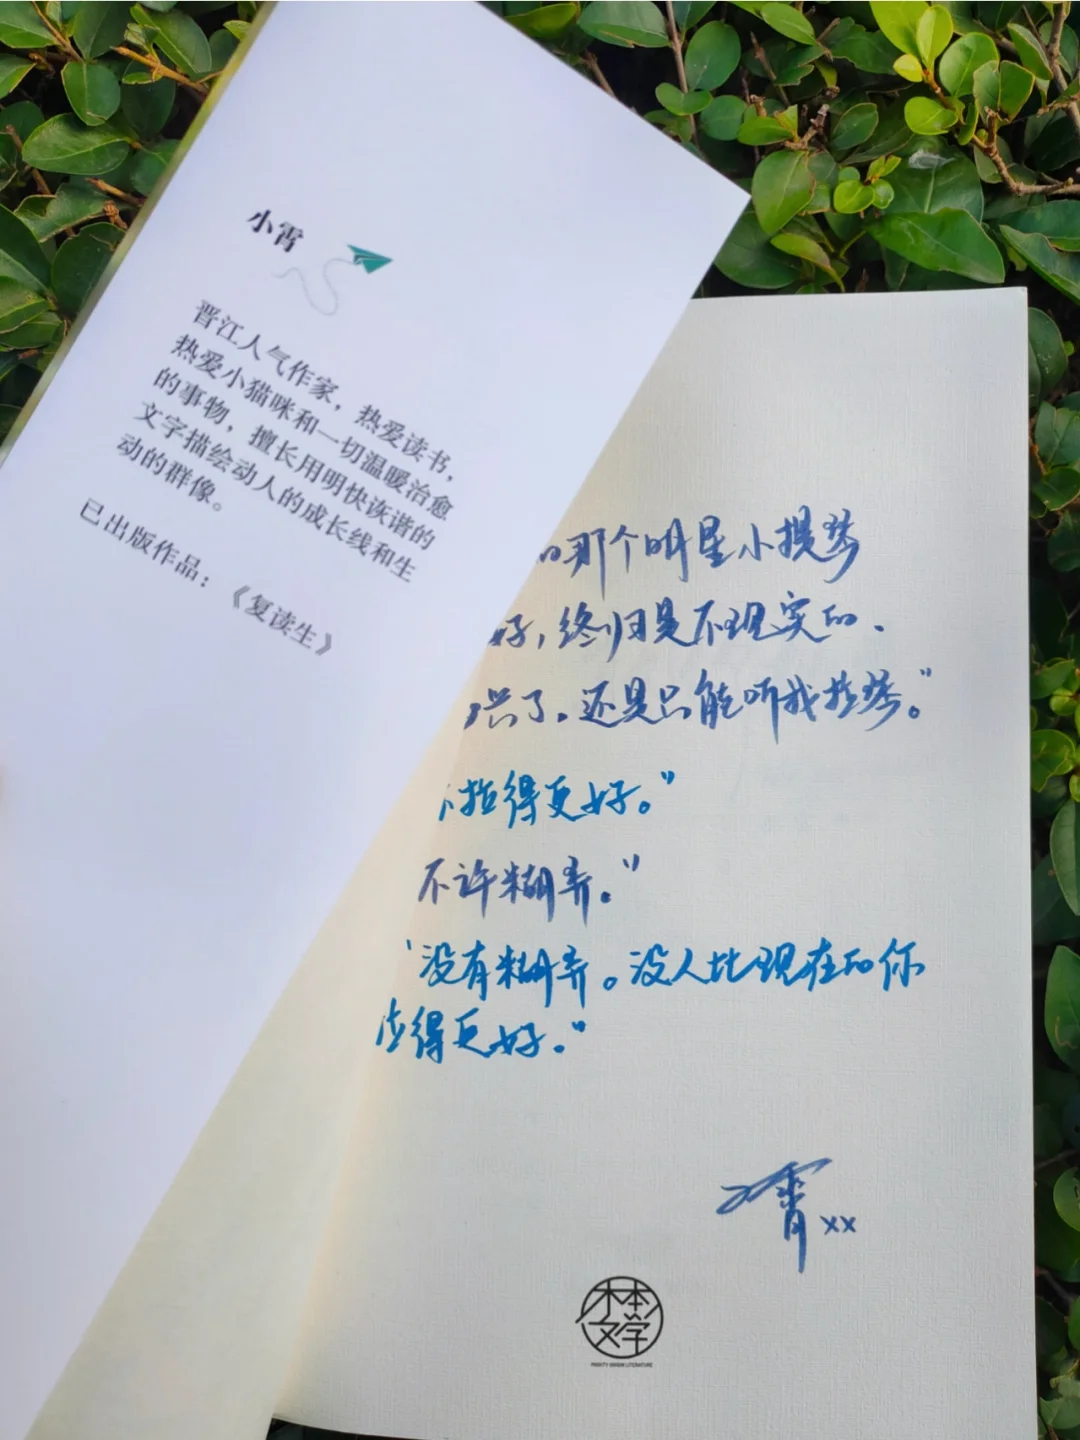 小霄
晋江人气作家，热爱读书，
热爱小猫咪和一切温暖治愈
的事物，擅长用明快诙谐的
文字描绘动人的成长线和生
动的群像。
已出版作品：《复读生》
的那个明星小提琴
好，终归是不现实的.
兴了。还是只能听我拉琴。”
拉得更好。”
不许糊弄。”
“没有糊弄。没人比现在的你
拉得更好。”
小霄xx
本本
文学
PRIORITY ORIGIN LITERATURE